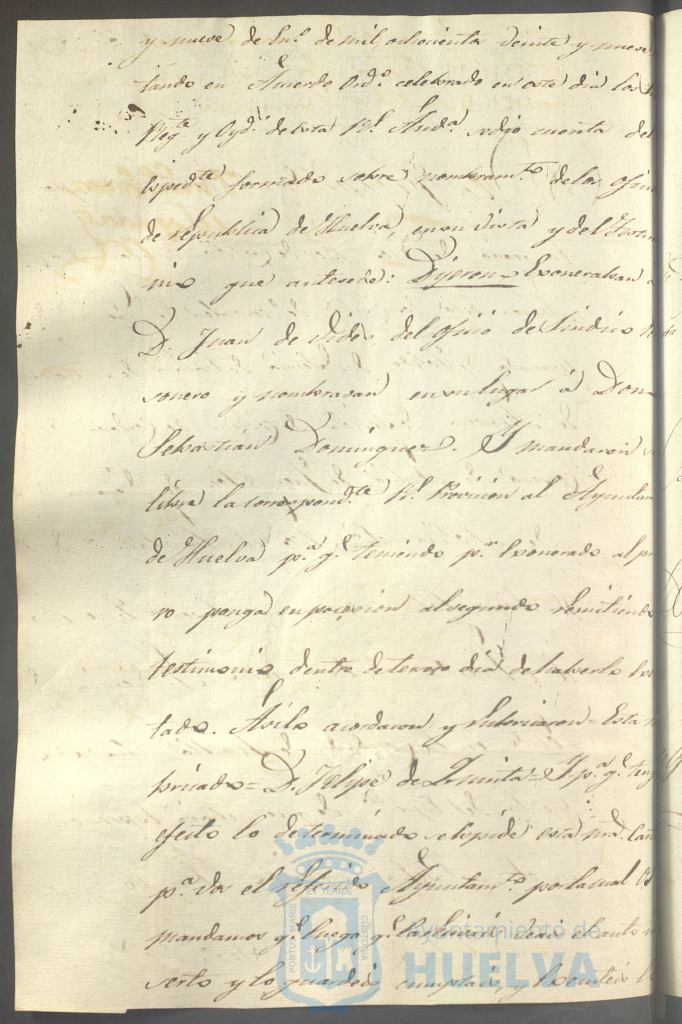 y nueve de En.º de mil ochocientos veinte y nueve
tando en Acuerdo Ord.º celebrado en este día los
Reg.te y Oyd.s de esta R.l Aud.a se dio cuenta del
Esped.te formado sobre nombram.to de los ofici
de republica de Huelva, en su vista y del Testim
nio que antesede: Dijeron = Exoneraban a
D. Juan de Vides del oficio de Sindico
sonero y nombravan en su lugar á Don
Sebastián Dominguez. Y mandaron
libre la correspond.te R.l Provision al Ayuntam
de Huelva p.a q.e teniendo p.r Exonerado al pri
ro ponga en posecion al segundo remitiendo
testimonio dentro de tercero día de haverlo Exe
tado. Así lo acordaron y rubricaron = Esta
bricado = D. Felipe de Quinta = Y p.a q.e teng
efecto lo determinado se espide esta nra. carta
p.a vos el referido Ayuntam.to por la cual os
mandamos q.e luego q.e la reciváis veais el auto in
serto y lo guardeis cumplais, y Executeis
Ayuntamiento de
HUELVA